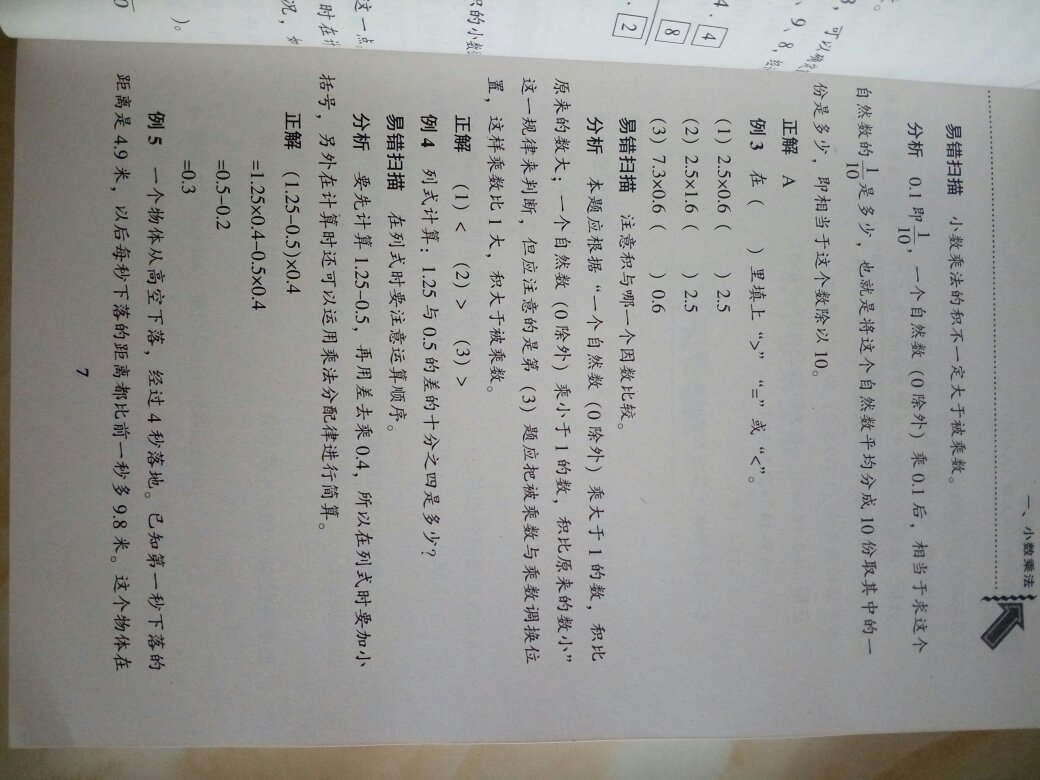 一、小数乘法
易错扫描 小数乘法的积不一定大于被乘数。
分析 0.1即1/10，一个自然数（0除外）乘0.1后，相当于求这个
自然数的1/10是多少，也就是将这个自然数平均分成10份取其中的一
份是多少，即相当于这个数除以10。
正解 A
例3 在（ ）里填上“>”“=”或“<”。
(1) 2.5×0.6（ ）2.5
(2) 2.5×1.6（ ）2.5
(3) 7.3×0.6（ ）0.6
易错扫描 注意积与哪一个因数比较。
分析 本题应根据“一个自然数（0除外）乘大于1的数，积比
原来的数大；一个自然数（0除外）乘小于1的数，积比原来的数小”
这一规律来判断，但应注意的是第（3）题应把被乘数与乘数调换位
置，这样乘数比1大，积大于被乘数。
正解 (1) < (2) > (3) >
例4 列式计算：1.25与0.5的差的十分之四是多少？
易错扫描 在列式时要注意运算顺序。
分析 要先计算1.25-0.5，再用差去乘0.4，所以在列式时要加小
括号，另外在计算时还可以运用乘法分配律进行简算。
正解 (1.25-0.5)×0.4
=1.25×0.4-0.5×0.4
=0.5-0.2
=0.3
例5 一个物体从高空下落，经过4秒落地。已知第一秒下落的
距离是4.9米，以后每秒下落的距离都比前一秒多9.8米。这个物体在
7
可以
、9、8，
4. 4
8
. 2
的小数
这一点
时在计
况，如
）。